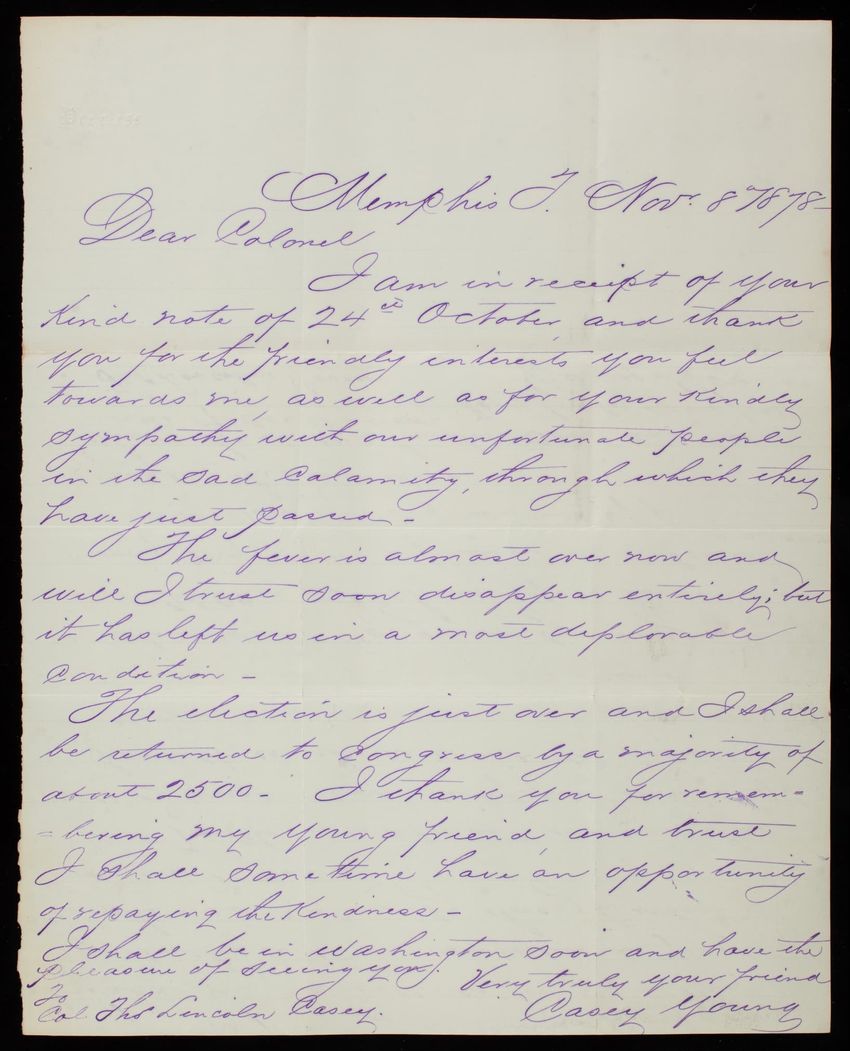 Memphis T. Nov. 8" 1878-
Dear Colonel
I am in receipt of your
kind note of 24th October, and thank
you for the friendly interests you feel
towards me, as well as for your kindly
sympathy with our unfortunate people
in the sad calamity, through which they
have just passed-
The fever is almost over now and
will I trust soon disappear entirely; but
it has left us in a most deplorable
condition -
The election is just over and I shall
be returned to Congress by a majority of
about 2500 - I thank you for remem=
=bering my young friend, and trust
I shall sometime have an opportunity
of repaying the kindness -
I shall be in Washington soon and have the
pleasure of seeing you. Very truly your friend
To
Col Thos Lincoln Casey. Casey Young